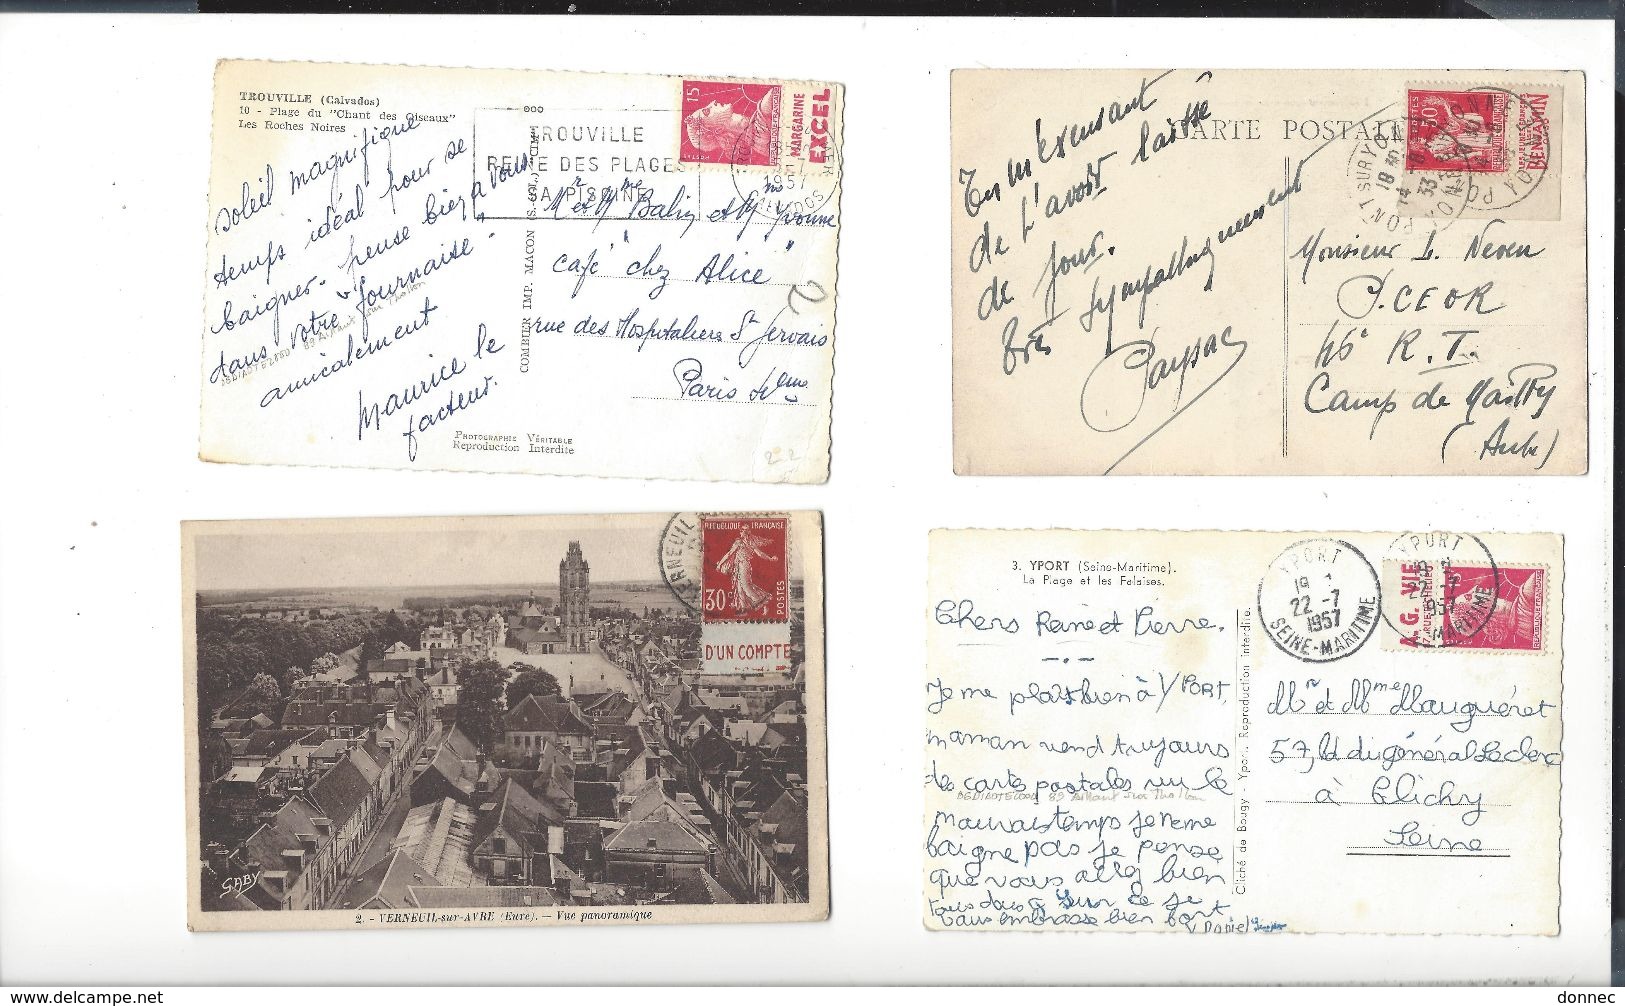 TROUVILLE (Calvados)
10 - Plage du "Chant des Oiseaux"
Les Roches Noires
Soleil magnifique
temps idéal pour se
baigner. pense bien à vous
dans votre "fournaise"
amicalement
Maurice le
facteur.
PHOTOGRAPHIE VÉRITABLE
Reproduction Interdite
COMBIER IMP. MACON
TROUVILLE
REINE DES PLAGES
SA PISCINE
1957
CALVADOS
15F
MARGARINE
EXCEL
Mr et Mme Balin et Mme Yvonne
café "chez Alice"
rue des Hospitalières St Gervais
Paris
2
22
CARTE POSTALE
En m'excusant
de t'avoir laissé
de jour.
Très sympathiquement
Paysac
PONT SUR YONNE
18 30
33
BENJAMIN
Monsieur L. Neven
46e R.T.
Camp de Mailly
(Aube)
VERNEUIL
REPUBLIQUE FRANÇAISE
30c
POSTES
D'UN COMPTE
GABY
2. - VERNEUIL-sur-AVRE (Eure). - Vue panoramique
3. YPORT (Seine-Maritime).
La Plage et les Falaises.
Chers Reine et Pierre.
Je me plais bien à YPORT,
maman vend toujours
des cartes postales vu le
mauvais temps je ne me
baigne pas je pense
que vous allez bien
tous deux
vous embrasse bien fort
Daniel
Cliché de Bougy - Yport. Reproduction interdite.
YPORT
19
22 -7
1957
SEINE-MARITIME
YPORT
22 -7
1957
MARITIME
A.G. VIE
Mr et Mme Mauguéret
57, bd du général Leclerc
à Clichy
Seine
donnec